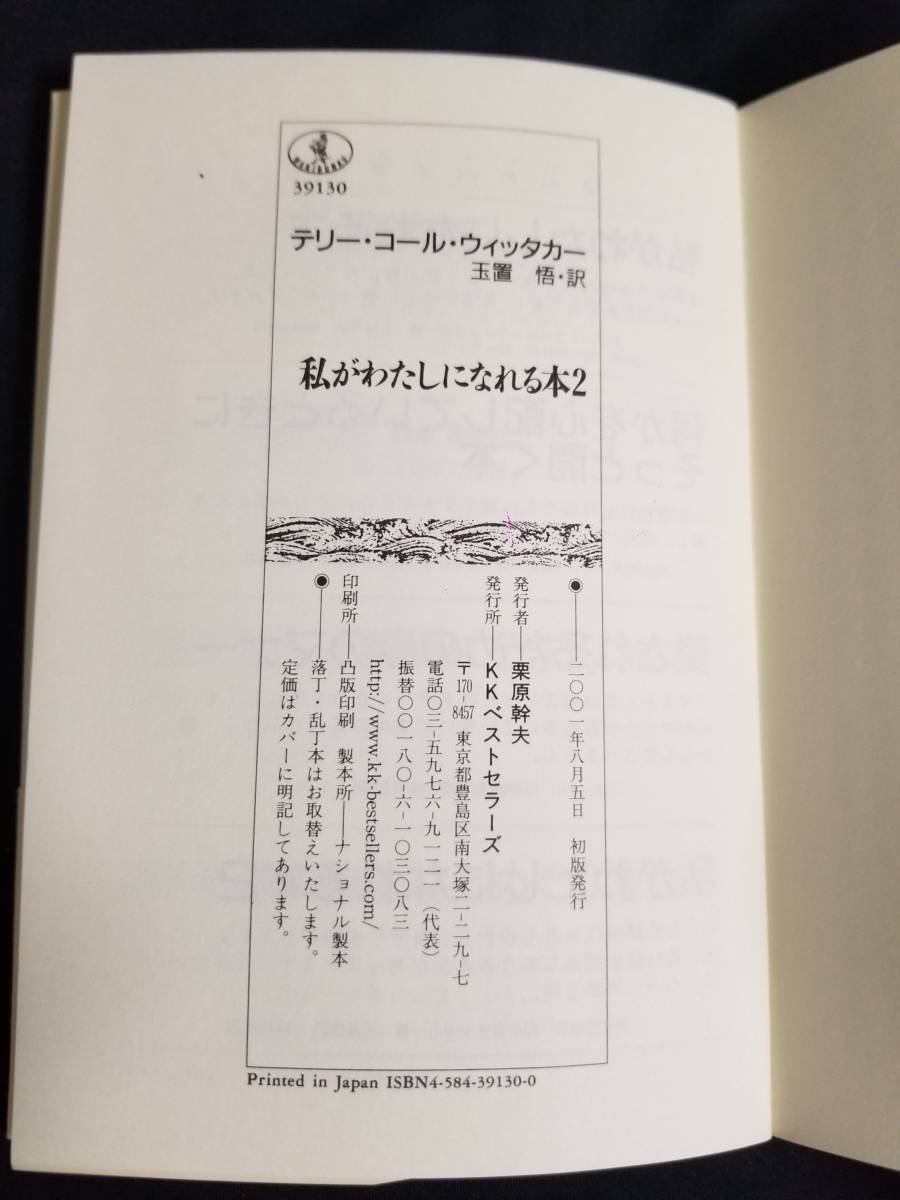 39130
テリー・コール・ウィッタカー
玉置 悟・訳
私がわたしになれる本2
●――二〇〇一年八月五日 初版発行
発行者――栗原幹夫
発行所――KKベストセラーズ
〒170-8457 東京都豊島区南大塚二-二九-七
電話〇三-五九七六-九一二一(代表)
振替〇〇一八〇-六-一〇三〇八三
http://www.kk-bestsellers.com/
印刷所――凸版印刷 製本所――ナショナル製本
●――落丁・乱丁本はお取替えいたします。
定価はカバーに明記してあります。
Printed in Japan ISBN4-584-39130-0